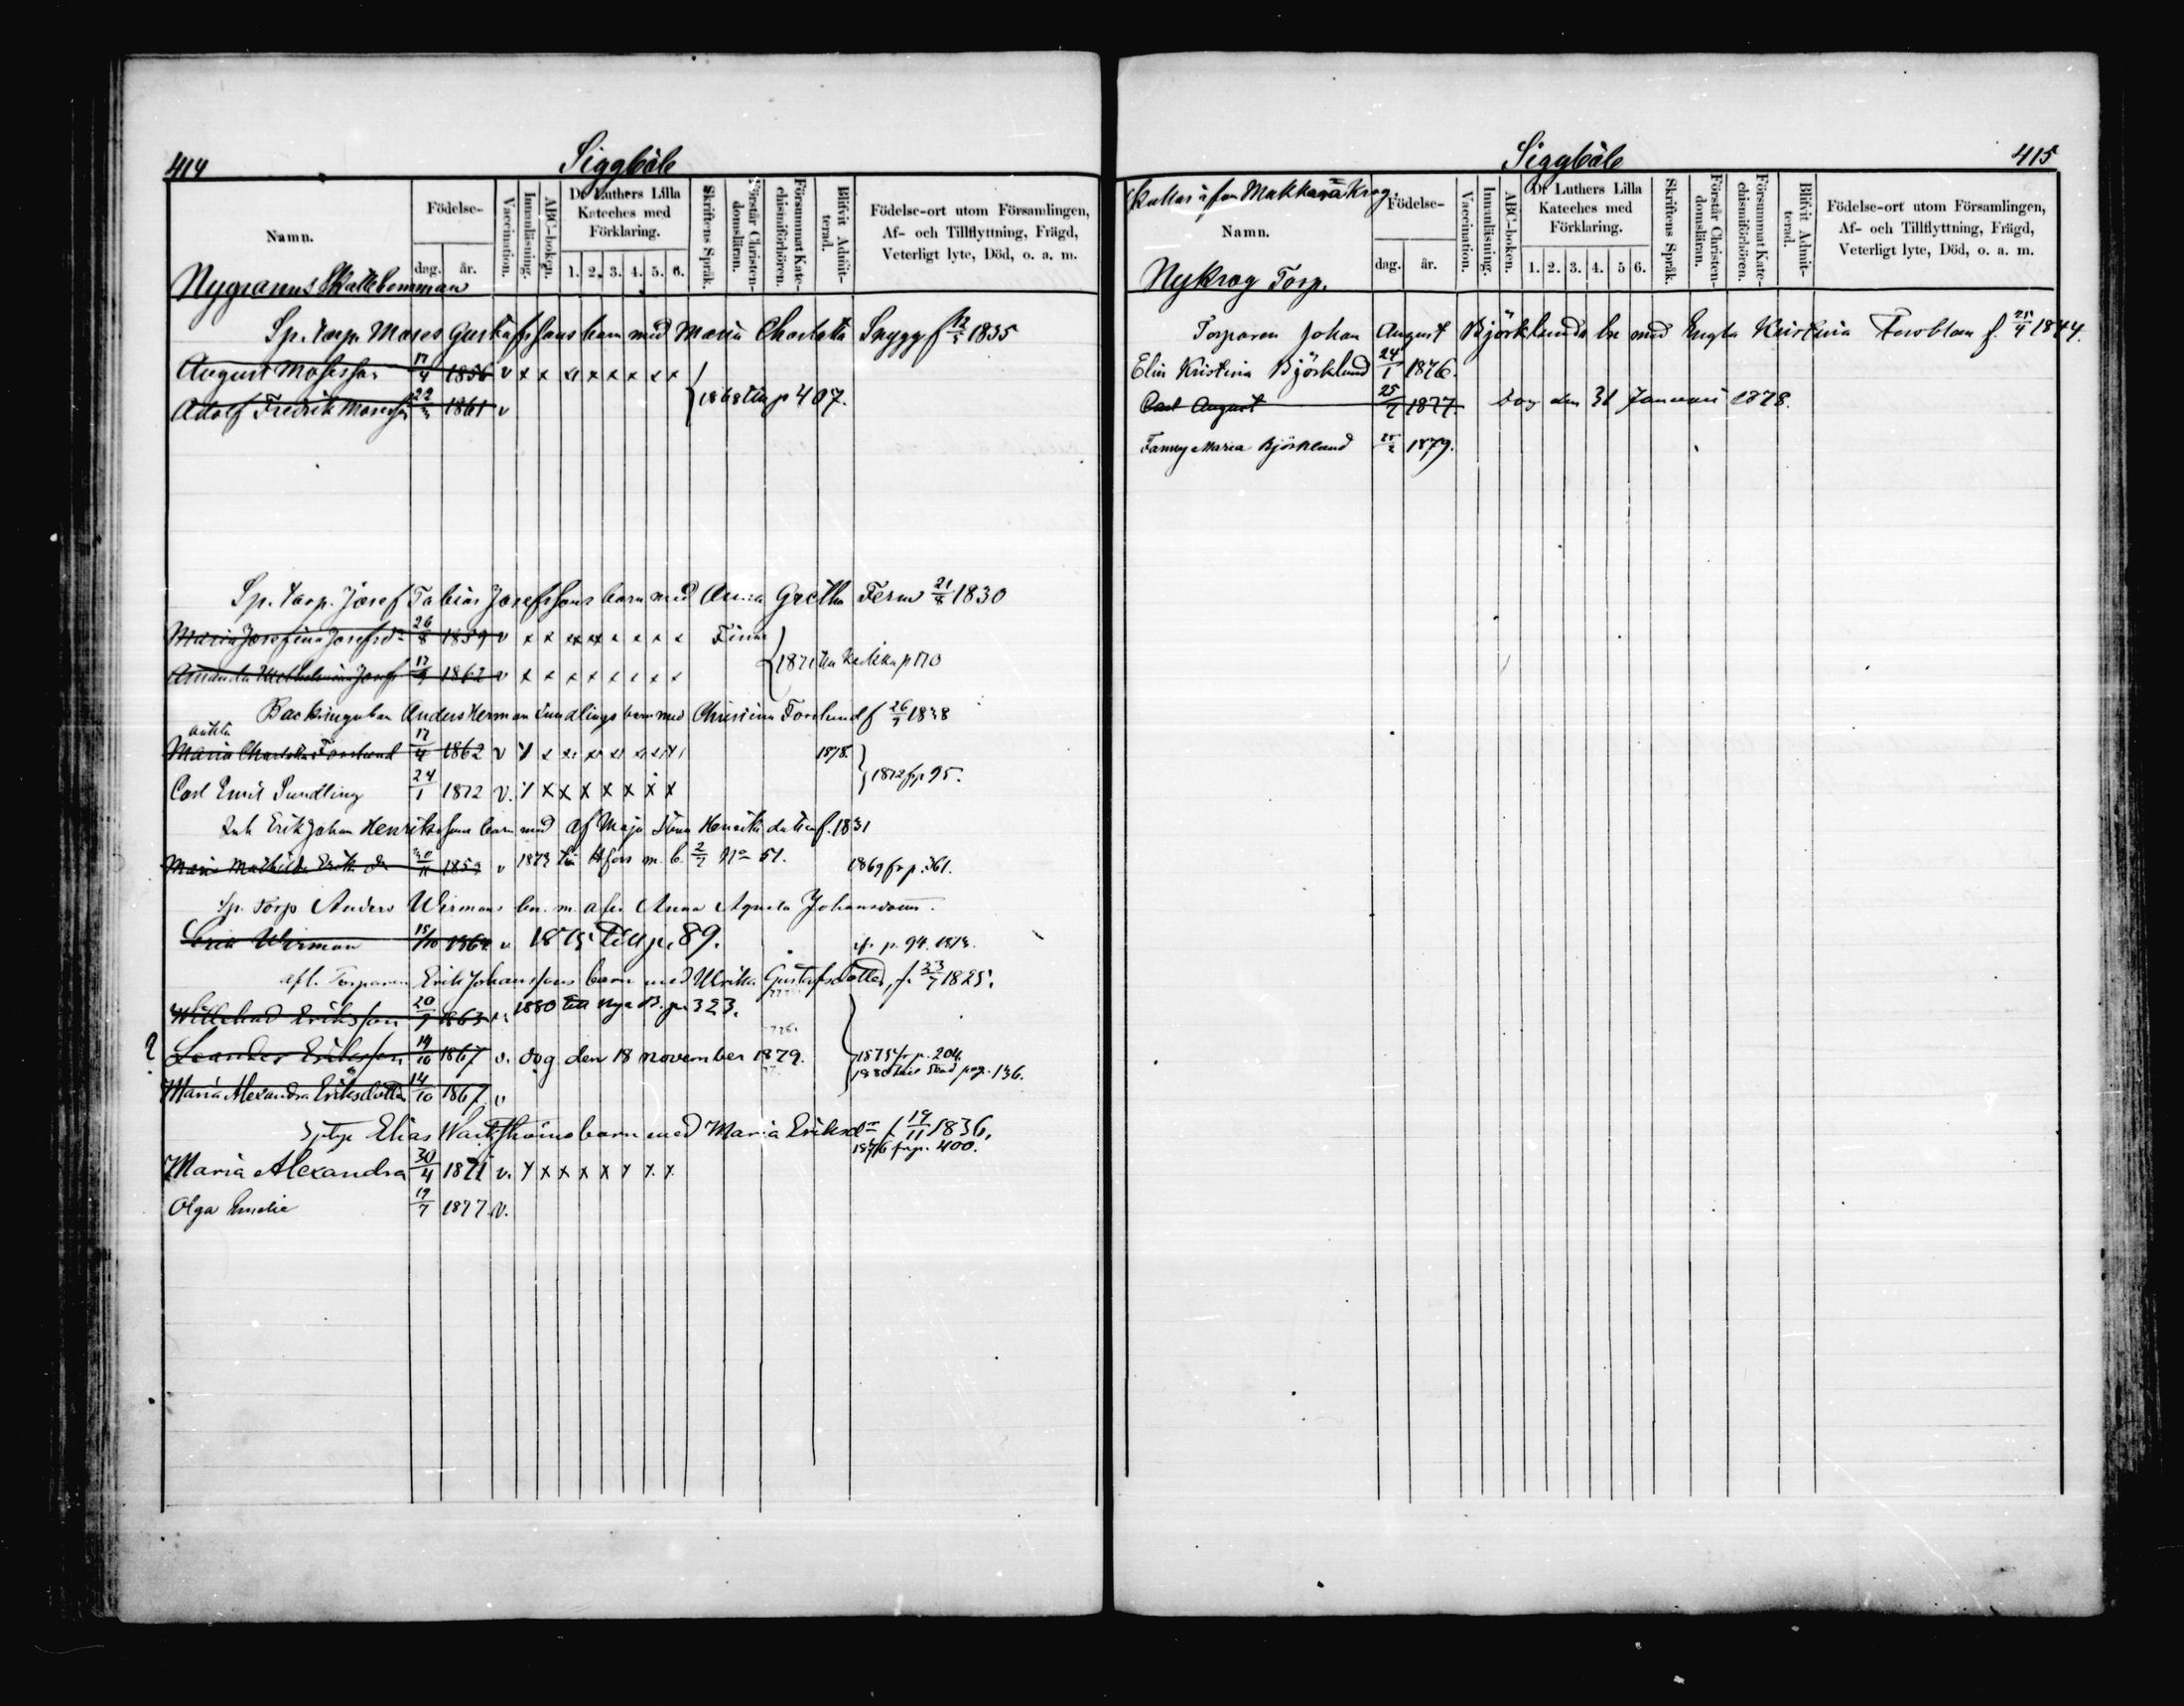 414
Siggböle
Namn.
Födelse-
dag.
år.
Vaccination.
Innanläsning.
ABC-boken.
Dr Luthers Lilla
Kateches med
Förklaring.
1. 2. 3. 4. 5. 6.
Skriftens Språk.
Förstår Christen-
domsläran.
Försummat Kate-
chismiförhören.
Blifvit Admit-
terad.
Födelse-ort utom Församlingen,
Af- och Tillflyttning, Frägd,
Veterligt lyte, Död, o. a. m.
Nygranns Skattehemman
Sp. torp. Moses Gustafssons barn med Maria Charlotta Snygg f 1835
August Mosesson 17/4 1856 v x x x x x x x x
Adolf Fredrik Mosesson 1861 v 1868 till p 407.
Sp. torp. Josef Tobias Josefssons barn med Anna Gretha Ferm 21/8 1830
Maria Josefina Josefsdr 26/8 1859 v x x x x x x x x
Amanda Wilhelmina Josef 1862 v x x x x x x x x 1871 till p 170
Anders Herman Sundlings barn med Christina Forslund f 26/7 1838
oäkta
Maria Charlotta Forslund 17/4 1862 v 1878.
Carl Emil Sundling 24/1 1872 v. x x x x x x x x 1872 fr p. 95.
Inh Erik Johan Henrikssons barn med af Maja Stina Henriksdotter f. 1831
Maria Mathilda Eriksdr 1859 v 1873 till Hfors m. b. 2/7 No 51. 1869 fr p. 361.
Sp. torp Anders Wirmans bn. m. afl. Anna Agneta Johansdotter.
Wirman 15/10 1864 v 1875 till p. 89. fr p. 94. 1873.
afl. Torparen Erik Johanssons barn med Ulrika Gustafsdotter, f. 23/7 1825.
Willehad Eriksson 20/9 1863 v. 1880 till nya B. p. 323.
? Leander Eriksson 14/10 1867 v. dog den 18 november 1879. 1875 fr p. 204.
Maria Alexandra Eriksdotter 14/10 1867 v 1880 pag. 136.
Elias barn med Maria Eriksdr f 19/11 1836.
1876 fr p. 400.
Maria Alexandra 30/4 1871 v. x x x x x x x x
Olga Emelie 19/7 1877 v.
Siggböle
415
Kallas äfven Makkara Krog.
Namn.
Födelse-
dag.
år.
Vaccination.
Innanläsning.
ABC-boken.
Dr Luthers Lilla
Kateches med
Förklaring.
1. 2. 3. 4. 5 6.
Skriftens Språk.
Förstår Christen-
domsläran.
Försummat Kate-
chismiförhören.
Blifvit Admit-
terad.
Födelse-ort utom Församlingen,
Af- och Tillflyttning, Frägd,
Veterligt lyte, Död, o. a. m.
Nykrog Torp.
Torparen Johan August Björklunds bn med Engla Kristina Forsblom f. 25/4 1844.
Elin Kristina Björklund 24/1 1876.
Carl August 25/7 1877. Dog den 31 Januari 1878.
Fanny Maria Björklund 25/2 1879.